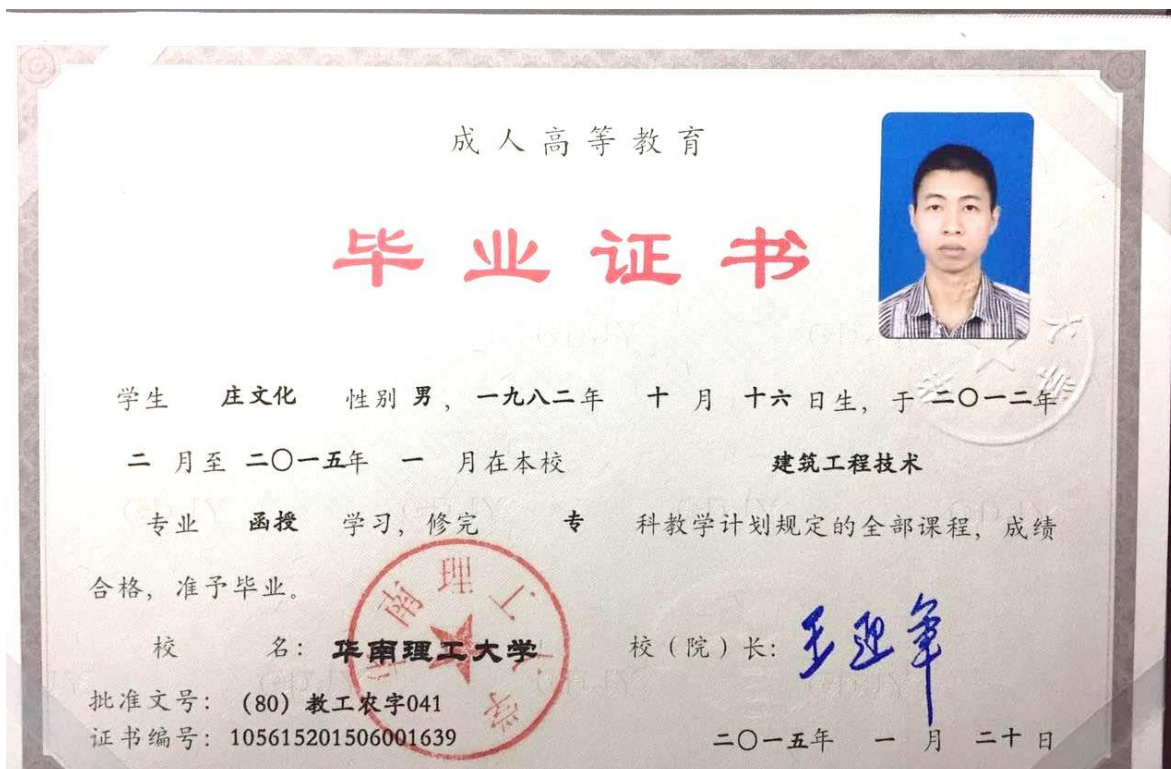 成人高等教育
毕业证书
学生 庄文化 性别 男，一九八二年 十 月 十六 日生，于 二〇一二年
二 月至 二〇一五年 一 月在本校 建筑工程技术
专业 函授 学习，修完 专 科教学计划规定的全部课程，成绩
合格，准予毕业。
校 名：华南理工大学 校（院）长：王迎军
批准文号：(80) 教工农字041
证书编号：105615201506001639 二〇一五年 一 月 二十 日
华南理工大学